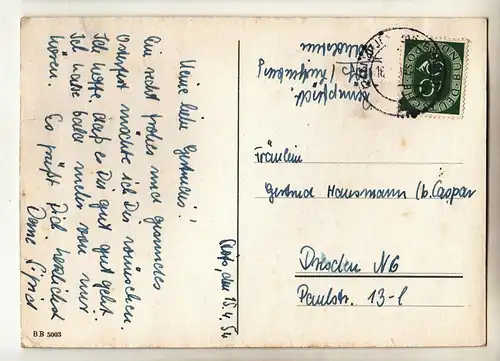 Meine liebe Gertrud!
Ein recht frohes und gesundes
Osterfest möchte ich Dir wünschen.
Ich hoffe, daß es Dir gut geht.
Ich lasse bald mehr von mir
hören. Es grüßt Dich herzlichst
Deine
den 15.4.54
BB 5003
Fräulein
Gertrud Hausmann (b. Caspar
Dresden N6
Paulstr. 13-l
DEUTSCHE BUNDESPOST